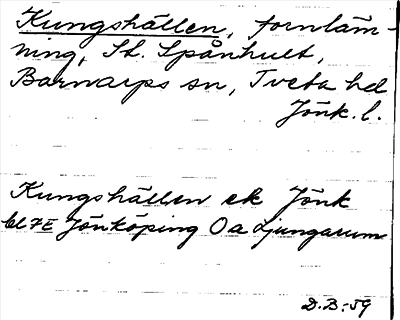 Kungshällen, fornläm-
ning, St. Spånhult,
Barnarps sn, Tveta hd
Jönk. l.
Kungshällen ek Jönk
bl 7E Jönköping Oa Ljungarum
D.B:-59